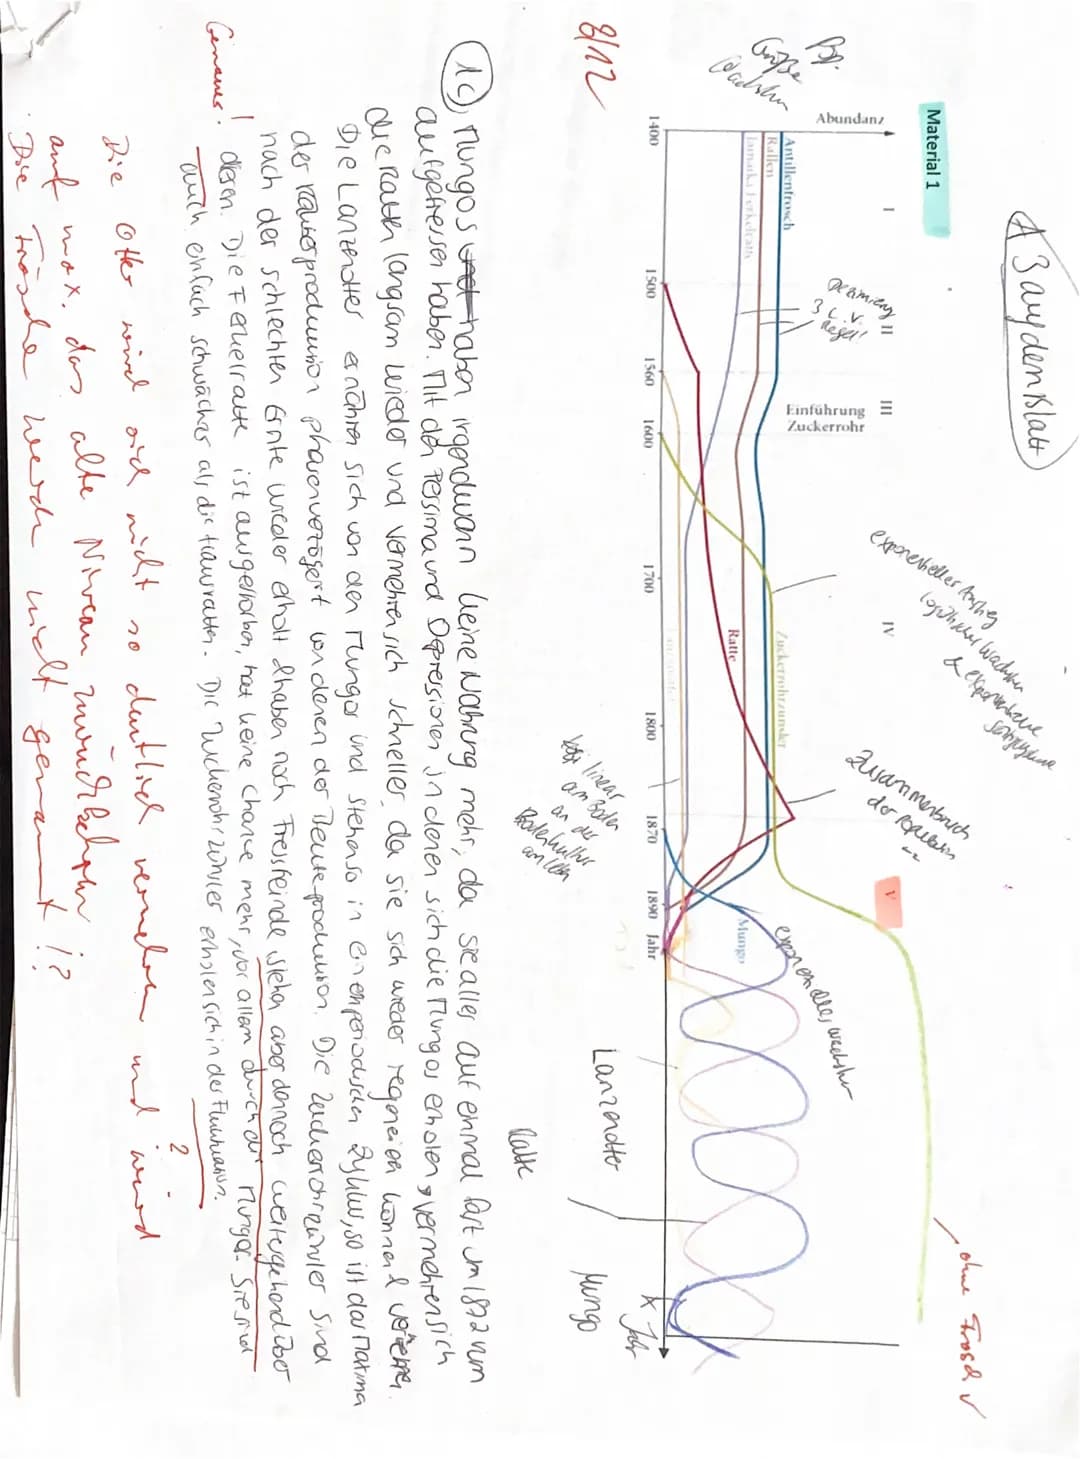 A3 auf dem Blatt
Material 1
Abundanz
Bsp.
Größe
Wachstum
I
II
III
IV
V
Antillenfrosch
Rallen
Jamaika Ferkelratte
Dezimierung
3 L.V.
Regel!
Einführung
Zuckerrohr
exponentieller Anstieg
logistisches Wachstum
& exponentielle
Zuckerrohrzünsler
Ratte
Zusammenbruch
der Population
exponentielles Wachstum
Mungo
ohne Frosch ✓
1400
1500
1560
1600
1700
1800
1870
1890
Jahr
x Jahr
linear
am Boden
an der
Lanzenotter
Ratte
Mungo
8/12
1c) Mungos haben irgendwann keine Nahrung mehr, da sie alles auf einmal fast um 1872 rum
aufgefressen haben. Mit den Pessima und Depressionen in denen sich die Mungos erholen, vermehren sich
die Ratten langsam wieder und vermehren sich schneller, da sie sich wieder regenerieren können &
Die Lanzenotter ernähren sich von den Mungos und stehen so in einem periodischen Zyklus, so ist das Maxima
der Räuberproduktion phasenverzögert von denen der Beuteproduktion. Die Zuckerrohrzünsler sind
nach der schlechten Ernte wieder erholt & haben noch Fressfeinde, stehen aber dennoch weitergehend über
denen. Die Ferkelratte ist ausgestorben, hat keine Chance mehr, vor allem durch die Mungos. Sie sind
auch einfach schwächer als die Hausratten. Die Zuckerrohrzünsler erholen sich in der Fluktuation.
Genaues!
?
Die Otter wird sich nicht so deutlich vermehren und wird
auf max. das alte Niveau zurückkehren
Die Frösche werden nicht genannt!?